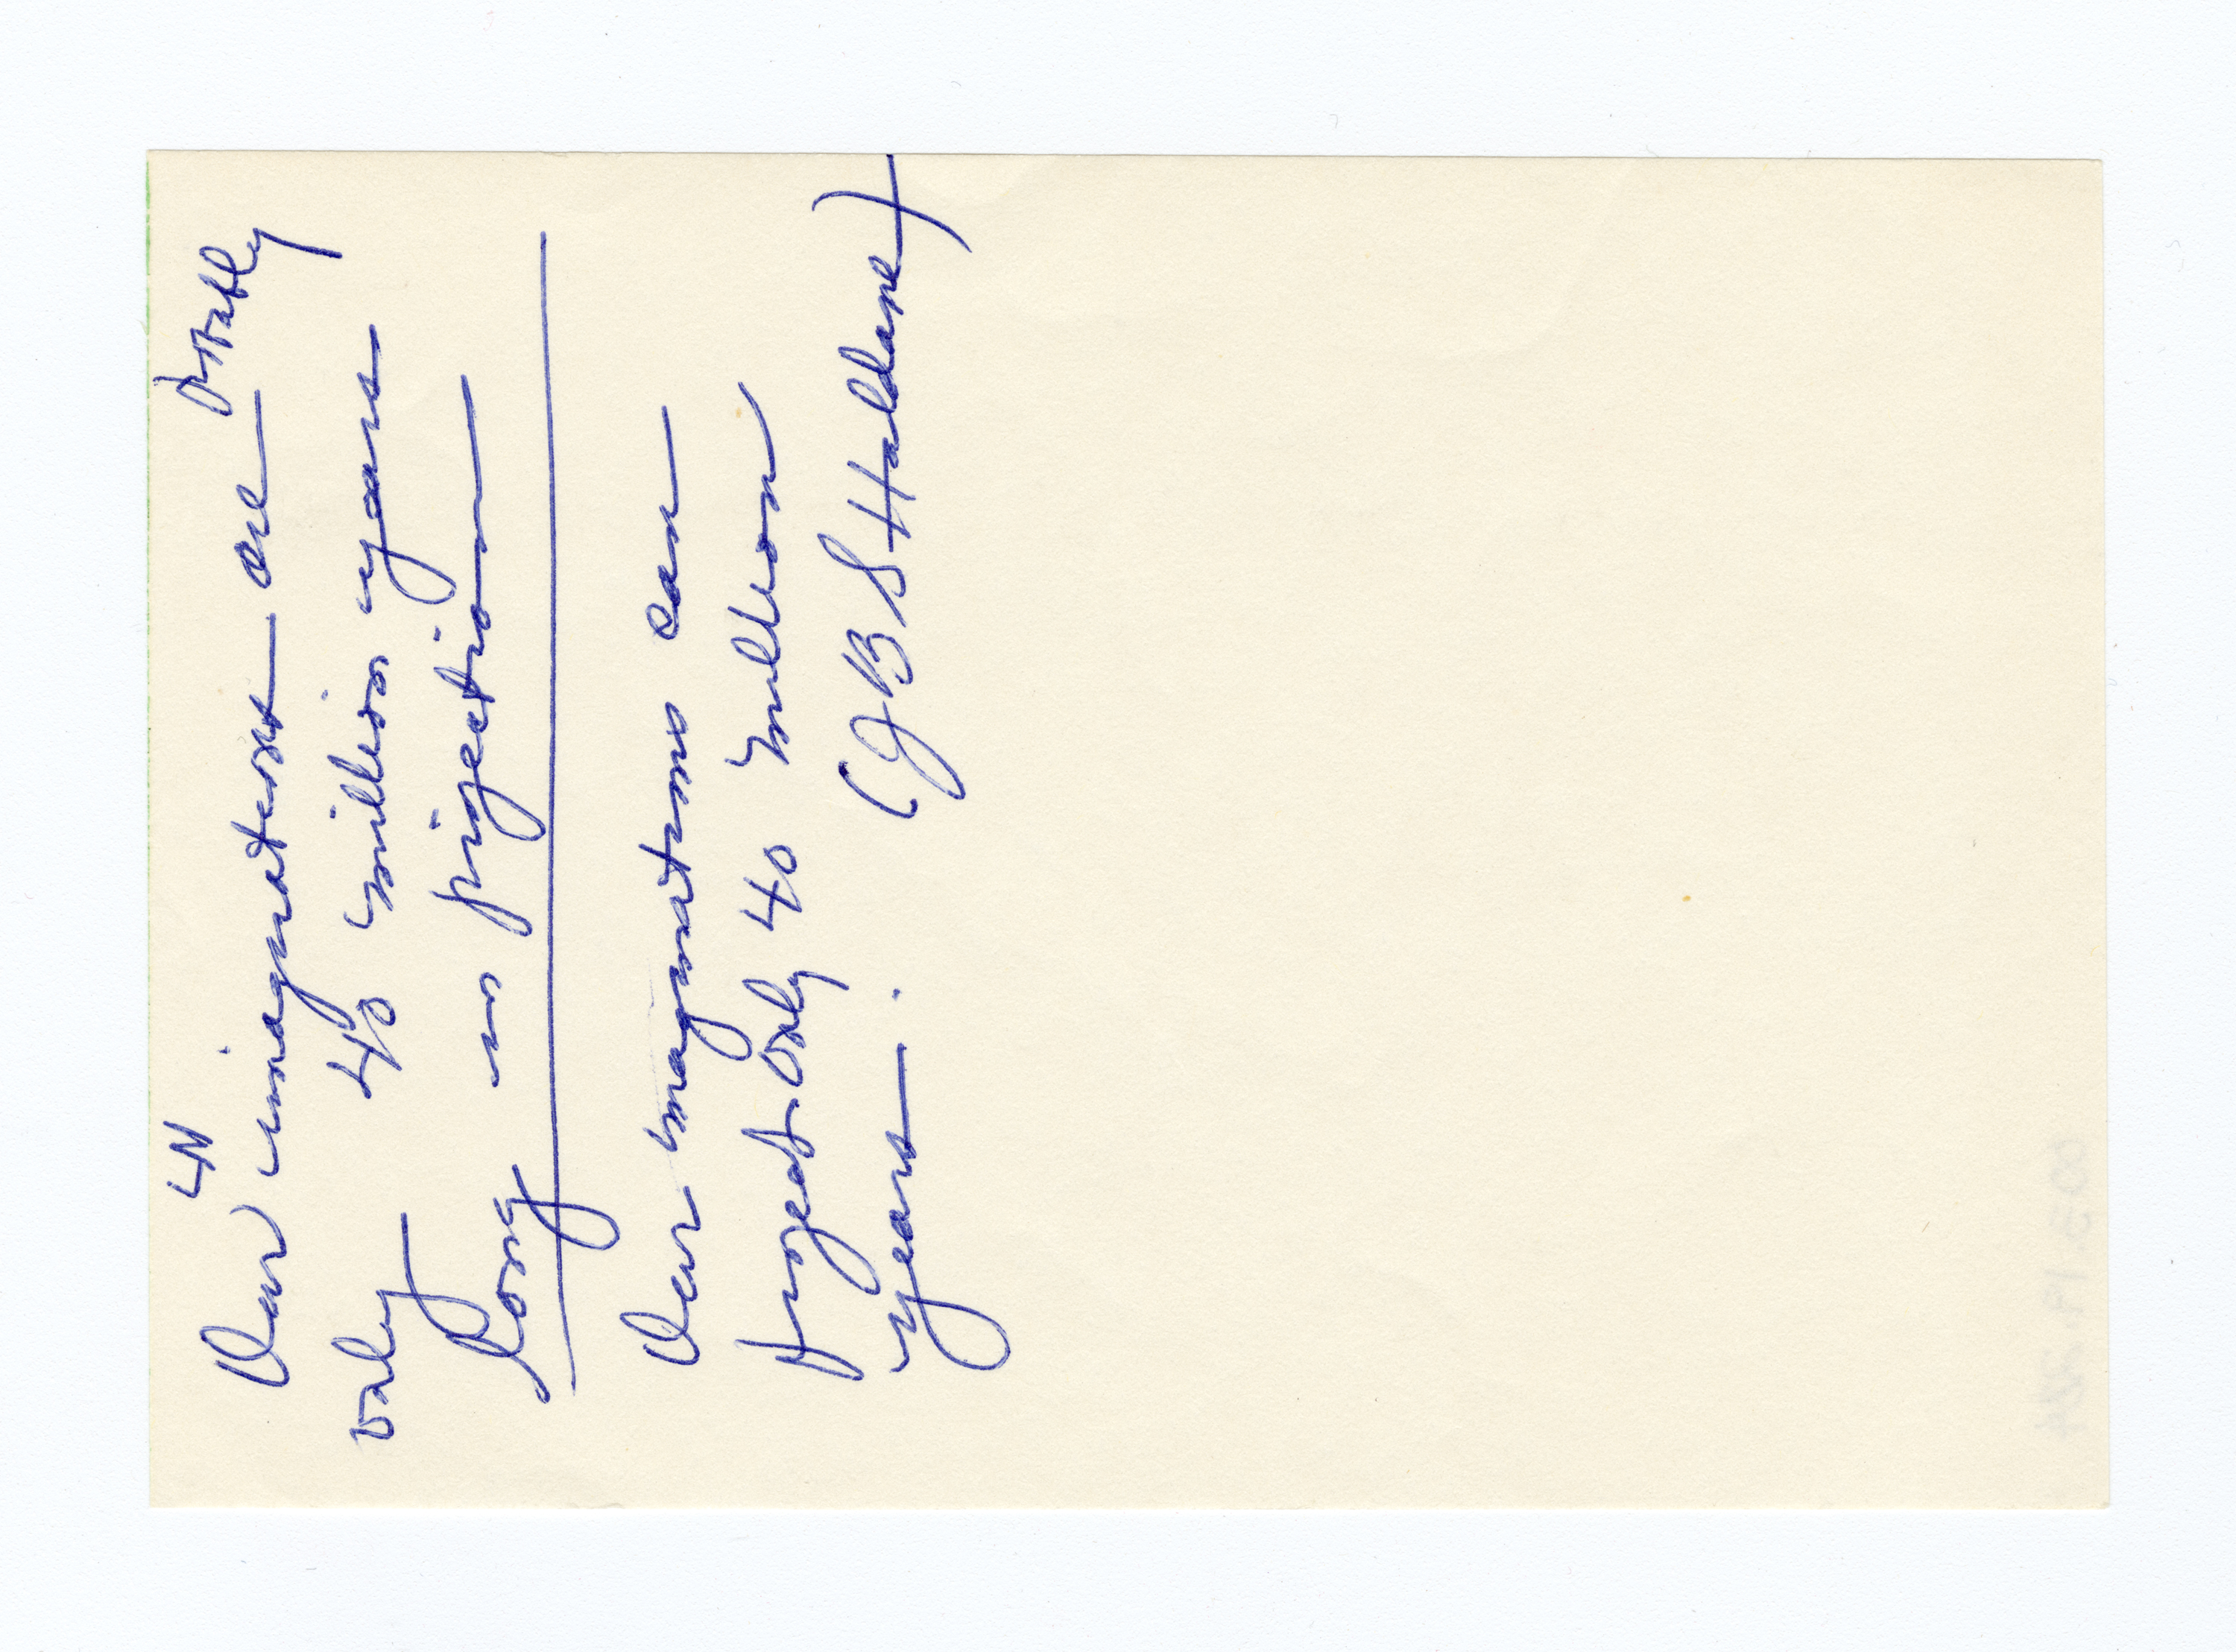 Our imaginations are probably
only 40 million years
long in projection
Our imaginations can
project only 40 million
years. (JBS Haldane)